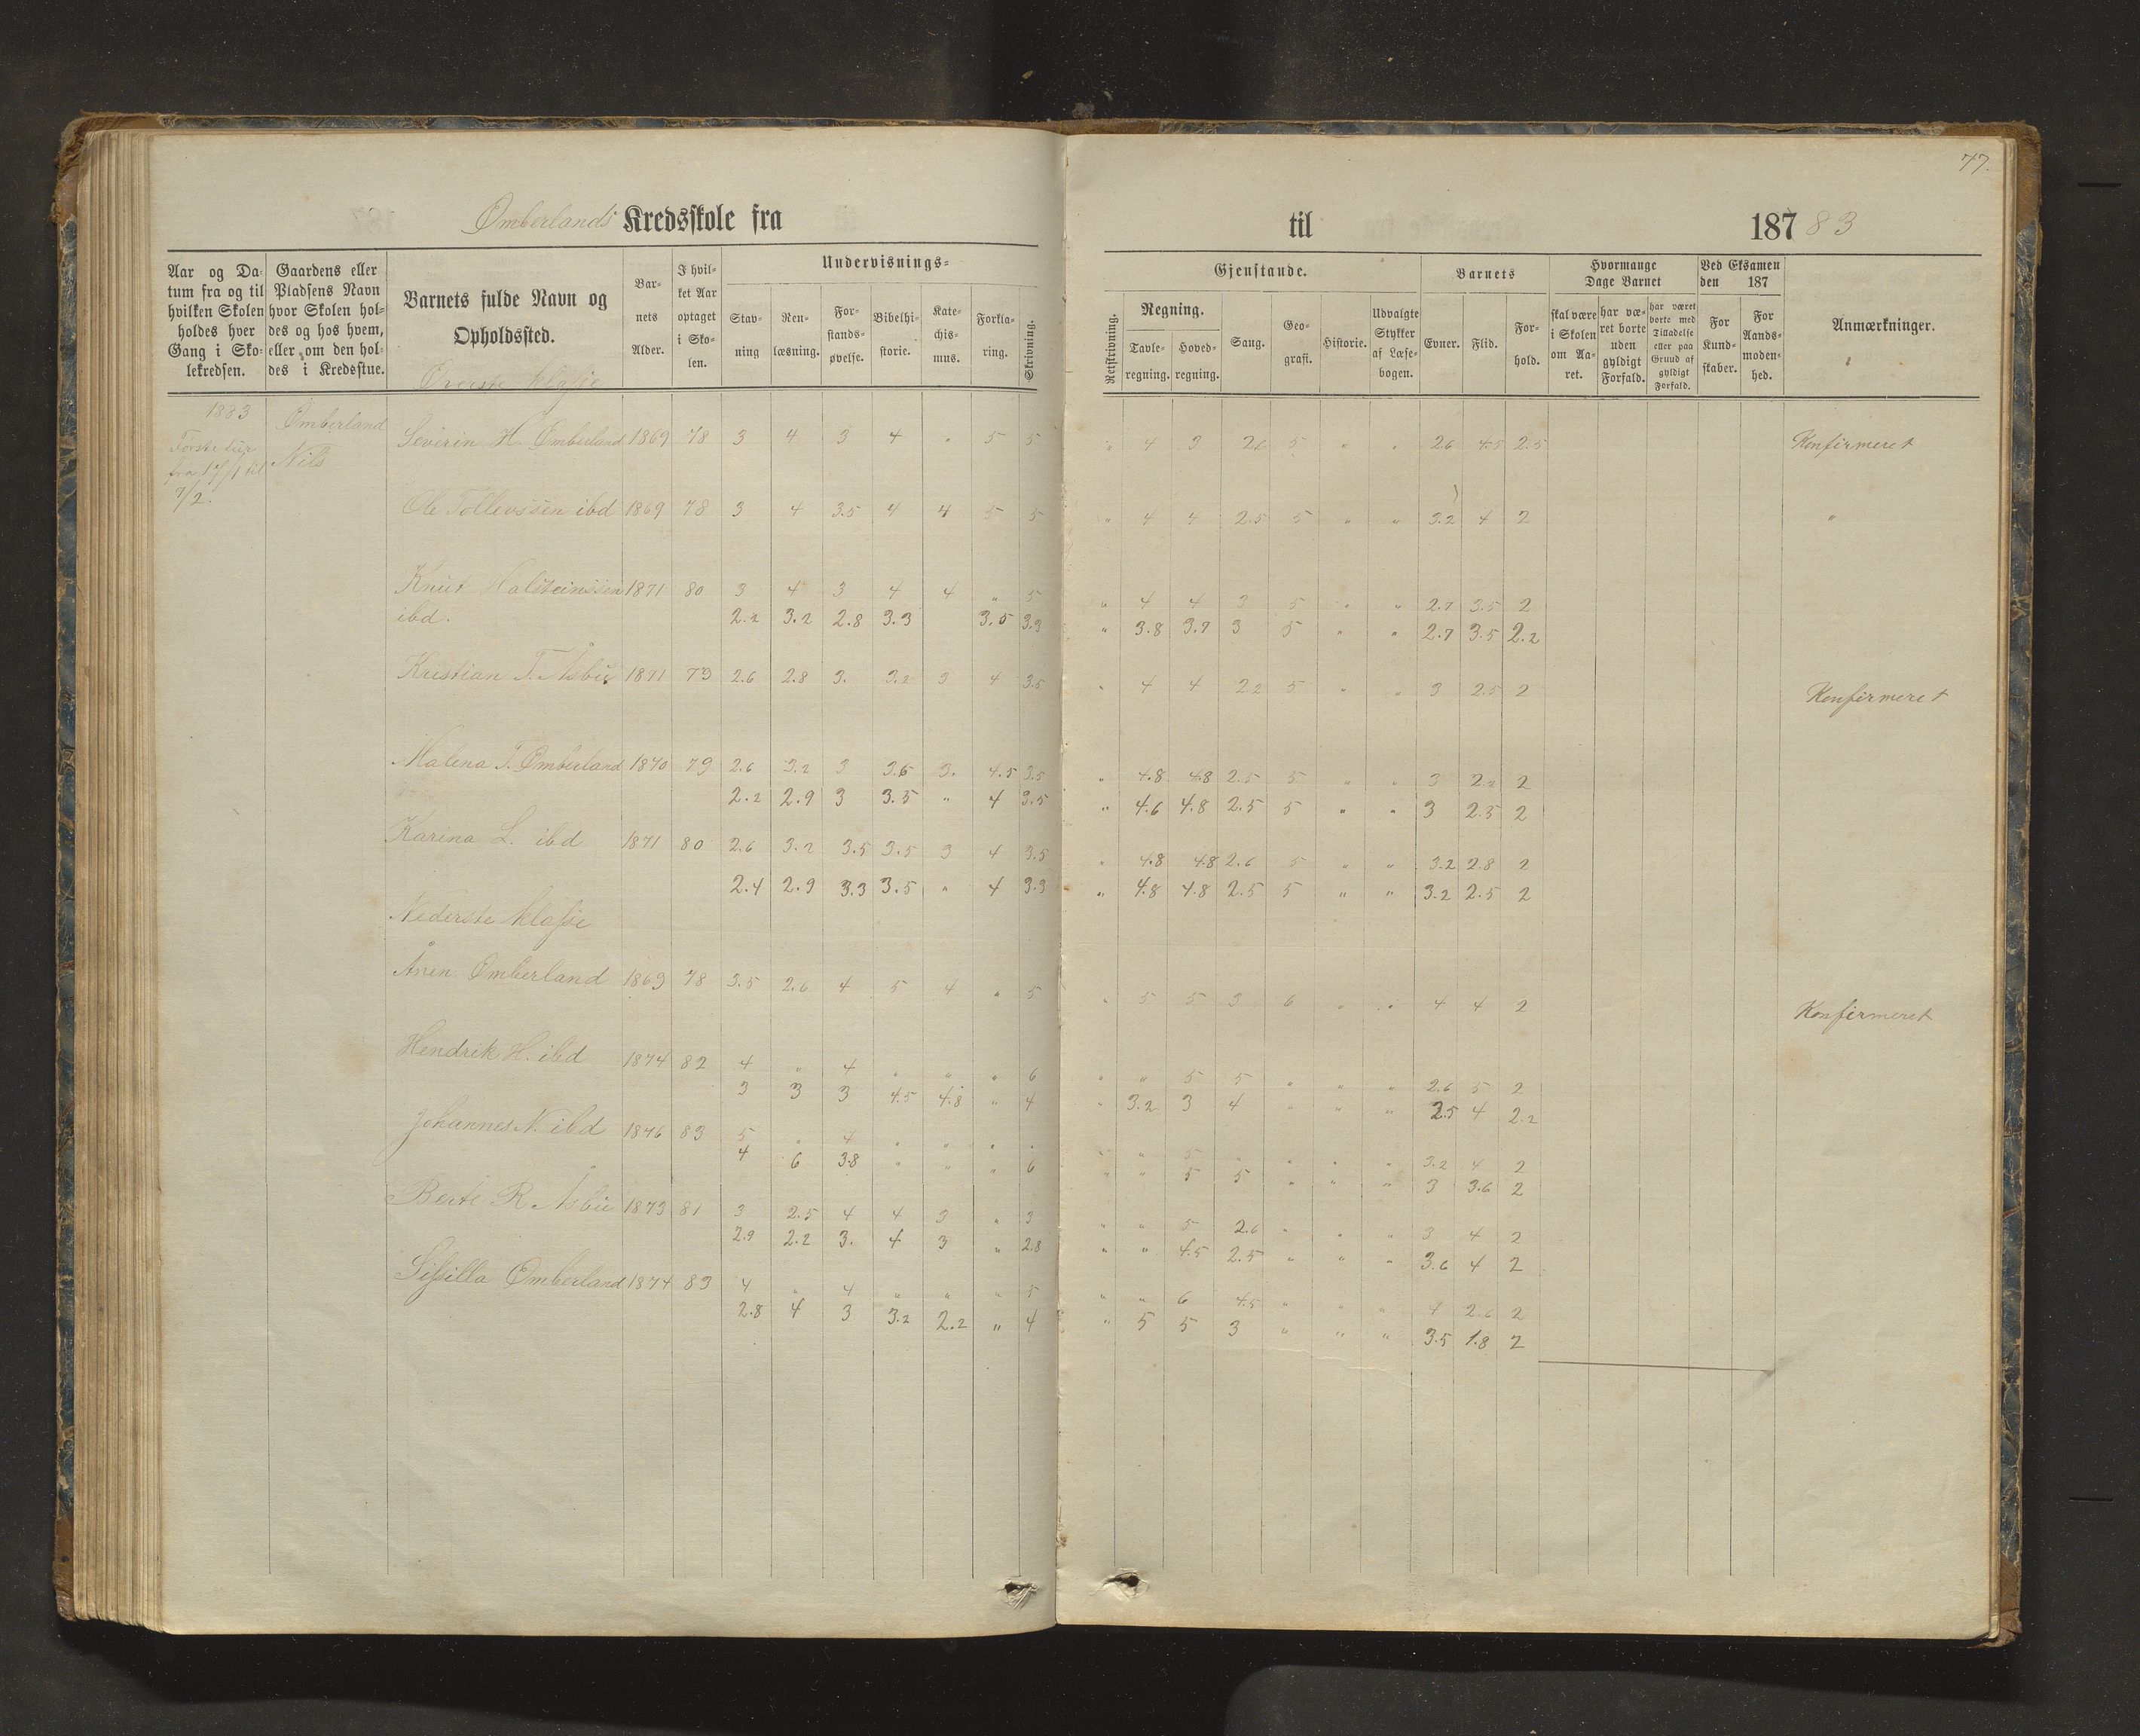 77.
Omberlands Kredsskole fra til 187 83
Aar og Da-
tum fra og til
hvilken Skolen
holdes hver
Gang i Sko-
lekredsen.
Gaardens eller
Pladsens Navn
hvor Skolen hol-
des og hos hvem,
eller om den hol-
des i Kredsstue.
Barnets fulde Navn og
Opholdssted.
Bar-
nets
Alder.
I hvil-
ket Aar
optaget
i Sko-
len.
Undervisnings-
Stav-
ning
Ren-
læsning.
For-
stands-
øvelse.
Bibelhi-
storie.
Kate-
chis-
mus.
Forkla-
ring.
Skrivning.
Gjenstande.
Retskrivning.
Regning.
Tavle-
regning.
Hoved-
regning.
Sang.
Geo-
grafi.
Historie.
Udvalgte
Stykker
af Læse-
bogen.
Barnets
Evner.
Flid.
For-
hold.
Hvormange
Dage Barnet
skal være
i Skolen
om Aa-
ret.
har væ-
ret borte
uden
gyldigt
Forfald.
har været
borte med
Tilladelse
eller paa
Grund af
gyldigt
Forfald.
Ved Eksamen
den 187
For
Kund-
skaber.
For
Aands-
moden-
hed.
Anmærkninger.
Øverste klasse
1883
Første tur
fra 17/1 til
7/2.
Omberland
Nils
Severin H. Omberland 1869 78 3 4 3 4 " 5 5 " 4 3 2.6 5 " " 2.6 4.5 2.5 Konfirmeret
Ole Tollevssen ibd 1869 78 3 4 3.5 4 4 5 5 " 4 4 2.5 5 " " 3.2 4 2 "
Knut Halsteinssen 1871 80 3 4 3 4 4 " 5 " 4 4 3 5 " " 2.7 3.5 2
ibd. 2.2 3.2 2.8 3.3 3.5 3.3 " 3.8 3.7 3 5 " " 2.7 3.5 2.2
Kristian T. Åsbu 1871 79 2.6 2.8 3. 3.2 3 4 3.5 " 4 4 2.2 5 " " 3 2.5 2 Konfirmeret
Malena T. Omberland 1870 79 2.6 3.2 3 3.6 3. 4.5 3.5 " 4.8 4.8 2.5 5 " " 3 2.2 2
2.2 2.9 3 3.5 " 4 3.5 " 4.6 4.8 2.5 5 " " 3 2.5 2
Karina L. ibd 1871 80 2.6 3.2 3.5 3.5 3 4 3.5 " 4.8 4.8 2.6 5 " " 3.2 2.8 2
2.4 2.9 3.3 3.5 " 4 3.3 " 4.8 4.8 2.5 5 " " 3.2 2.5 2
Nederste klasse
Ånen Omberland 1869 78 3.5 2.6 4 5 4 " 5 " 5 5 3 6 " " 4 4 2 Konfirmeret
Hendrik H. ibd 1874 82 4 " 4 " " " 6 " " 5 5 " " " 2.6 5 2
3 3 3 4.5 4.8 " 4 " 3.2 3 4 " " " 2.5 4 2.2
Johannes N. ibd 1876 83 5 " 4 " " " " " " 5 " " " " 3.2 4 2
4 6 3.8 " " " 6 " " 5 5 " " " 3 3.6 2
Berte R. Åsbu 1873 81 3 2.5 4 4 3 " 3 " " 5 2.6 " " " 3 4 2
2.9 2.2 3. 4 3 " 2.8 " " 4.5 2.5 " " " 3.6 4 2
Sissilla Omberland 1874 83 4 " 4 " " " 5 " " 6 4.5 " " " 4 2.6 2
2.8 4 3 3.2 2.2 " 4 " 5 5 3 " " " 3.5 1.8 2